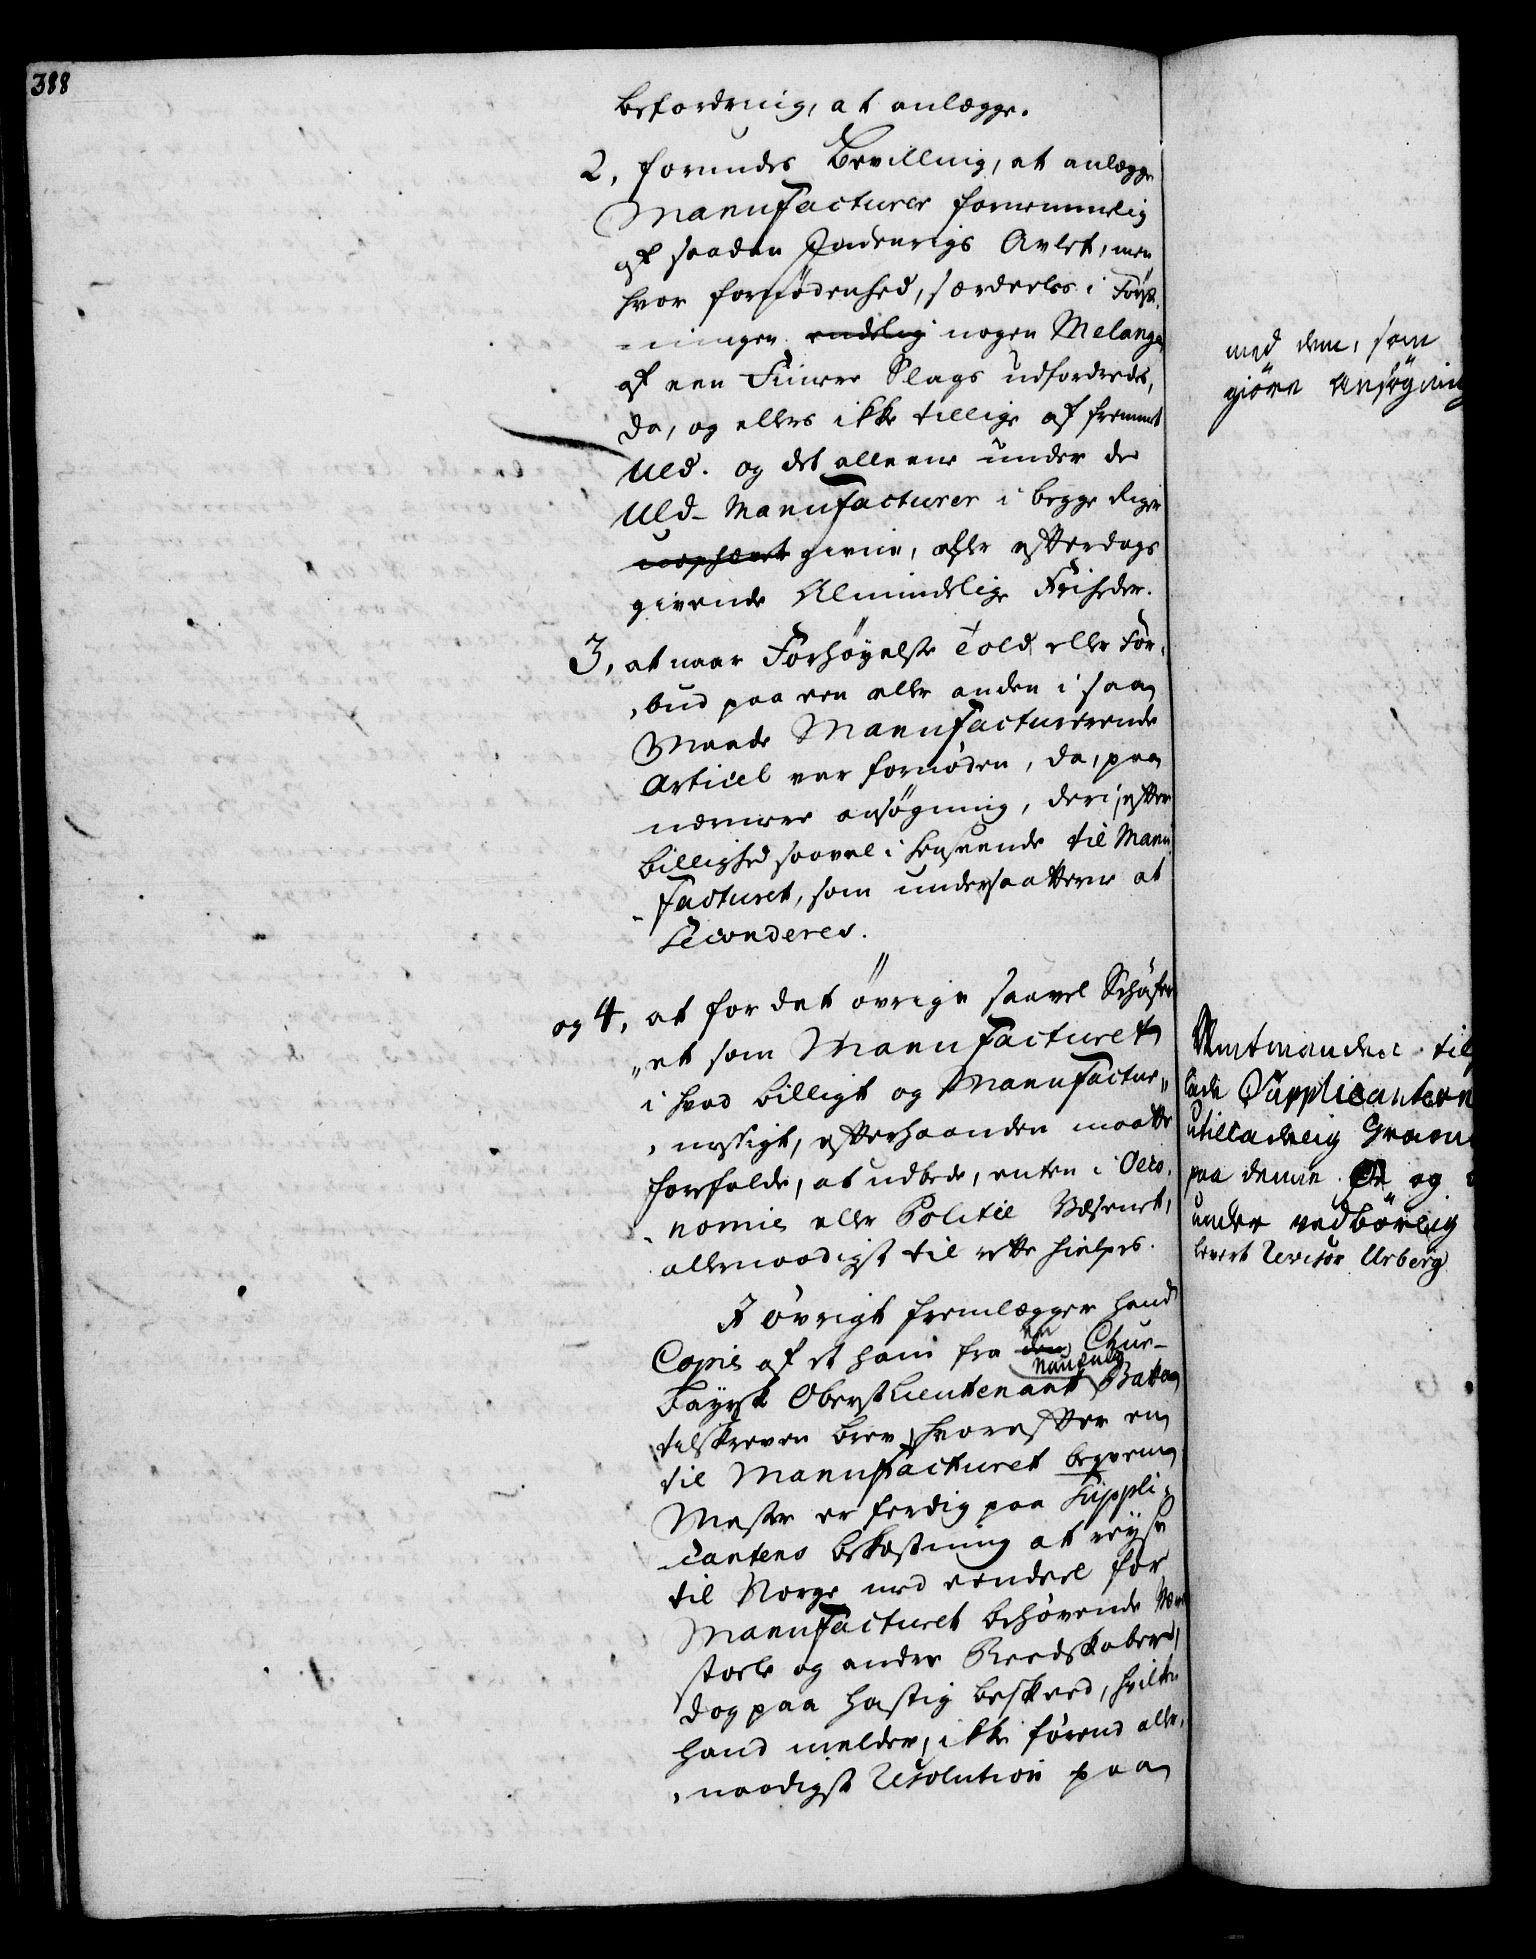 388
befordring, at anlægge.
2, forundes Bevilling, at anlægge
Manufacturer fornemmelig
af saadan Indenrigs Avlet, men
hvor fornødenhed, særdeeles i Først,
-ningen endelig nogen Melange
af een Finere Slags udfordredes,
da, og ellers ikke tillige af fremmet
Uld. og det alleene under de
Uld- Manufacturer i begge Riger
givne, eller efterdags
givende Almindelige Friheder.
3, at naar Forhøyelse Told eller For,
,bud paa een eller anden i saa
Maade Manufacturerende
Articel var fornøden, da, paa
nærmere ansøgning, deri, efter
billighed saavel i henseende til Manu
-facturet, som undersaatterne at
Seconderes.
og 4, at for det øvrige saavel Schäfer
„et som Manufacturet
i hvad billigt og Manufactur„
, messigt, efterhaanden maatte
forefalde, at udbede, enten i Oeco,
-nomie eller Politie Væsenet,
allernaadigst til rette hielpes.
I øvrigt fremlægger hand
Copie af et ham fra den Chur-
en
navnlig
Fayrsk Oberst Lieutenant Batta
tilskreven brev, hvorefter en
til Manufacturet beqvem
Mester er ferdig paa Suppli-
-cantens bekostning at reyse
til Norge med eendeel for
Manufacturet behøvende Væve
stoele og andre Reedskaber,
dog paa hastig beskeed, hvilken
hand melder, ikke førend aller,
,naadigst Resolution paa
med dem, som
giøre Ansøgning
Amtmanden til
lade Supplicantern
utilladelig
paa denne og
under vedbørlig
levert Revisor Urberg